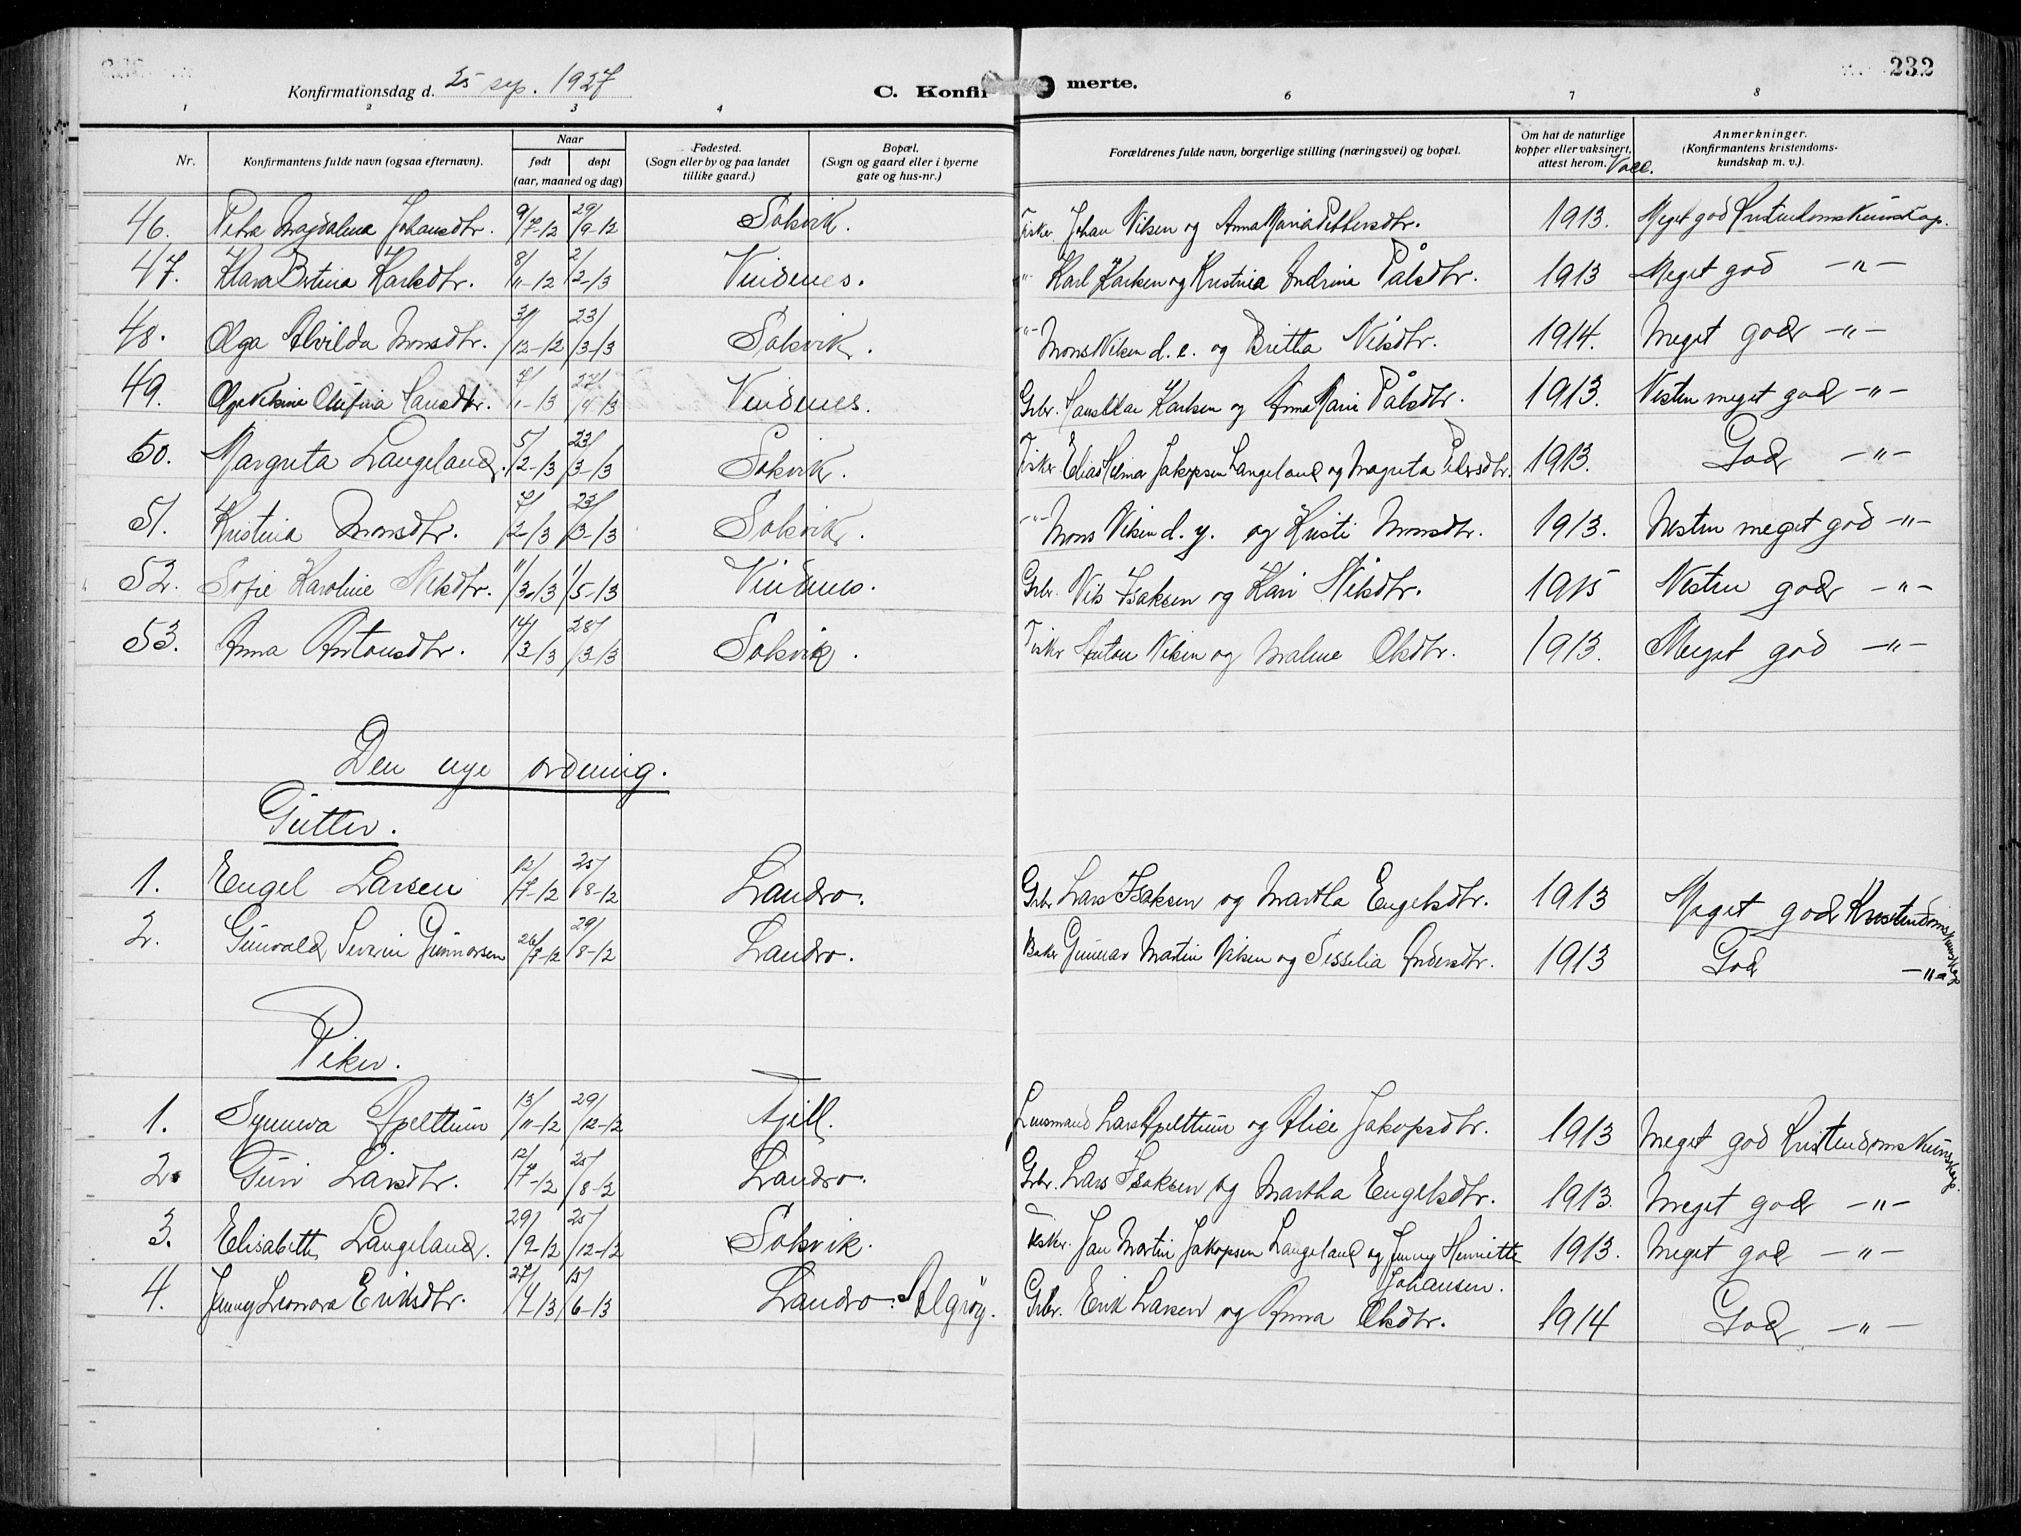 232
Konfirmationsdag d. 25 sep. 1927
C. Konfirmerte.
1 2 3 4 6 7 8
Nr. Konfirmantens fulde navn (ogsaa efternavn). Naar født døpt (aar, maaned og dag) Fødested. (Sogn eller by og paa landet tillike gaard.) Bopæl. (Sogn og gaard eller i byerne gate og hus-nr.) Forældrenes fulde navn, borgerlige stilling (næringsvei) og bopæl. Om hat de naturlige kopper eller vaksinert, attest herom. Vacc. Anmerkninger. (Konfirmantens kristendomskundskap m. v.).
46. Petra Magdalena Johansdtr. 9/7-12 29/9-12 Solsvik. Fisker Johan Nilsen og Anna Maria Pettersdtr. 1913. Meget god Kristendomskunskap.
47. Klara Bertina Karlsdtr. 8/11-12 2/2-13 Vindenes. -"- Karl Karlsen og Kristina Andrina Pålsdtr. 1913 Meget god -"-
48. Olga Alvilda Monsdtr. 31/12-12 23/3-13 Solsvik. -"- Mons Nilsen d. e. og Britha Nilsdtr. 1914. Meget god -"-
49. Olga Nilsine Hansdtr. 7/1-13 27/4-13 Vindenes. Grbr. Hans Karlsen og Anna Marie Pålsdtr. 1913. Nesten meget god -"-
50. Margreta Langeland. 5/2-13 23/3-13 Solsvik. Fisker Elias Hilmar Jakopsen Langeland og Magreta Pedersdtr. 1913. God -"-
51. Kristina Monsdtr. 7/2-13 23/3-13 Solsvik. -"- Mons Nilsen d. y. og Kristi Monsdtr. 1913. Nesten meget god -"-
52. Sofie Karoline Nilsdtr. 11/3-13 1/5-13 Vindenes. Grbr. Nils Isaksen og Kari Nilsdtr. 1915 Nesten god -"-
53. Anna Antonsdtr. 14/3-13 28/3-13 Solsvik. Fisker Anton Nilsen og Malene Olsdtr. 1913. Meget god -"-
Den nye ordning.
Gutter.
1. Engel Larsen 12/7-12 25/8-12 Landro. Grbr. Lars Isaksen og Martha Engelsdtr. 1913 Meget god Kristendomskunskap
2. Gunvald Severin Gunnarsen 26/7-12 29/8-12 Landro. Baker Gunnar Martin Nilsen og Sesselia Andersdtr. 1913 God -"-
Piker.
1. Synneva Apeltun 13/11-12 29/12-12 Fjell. Lensmand Lars Apeltun og Alice Jakopsdtr. 1913 Meget god Kristendomskunskap.
2. Guri Larsdtr. 12/7-12 25/8-12 Landro. Grbr. Lars Isaksen og Martha Engelsdtr. 1913. Meget god -"-
3. Elisabeth Langeland. 29/9-12 25/12-12 Solsvik. Fisker Jan Martin Jakopsen Langeland og Jenny Henriette Johansen. 1913. Meget god -"-
4. Jenny Leonora Eriksdtr. 27/4-13 15/6-13 Landro. Algrøy. Grbr. Erik Larsen og Anna Olsdtr. 1914 God -"-